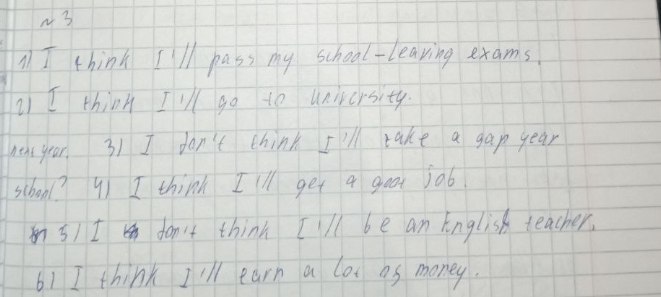 № 3
1) I think I'll pass my school-leaving exams.
2) I think I'll go to university.
next year. 3) I don't think I'll take a gap year
school? 4) I think I'll get a good job
5) I don't think I'll be an English teacher.
6) I think I'll earn a lot of money.